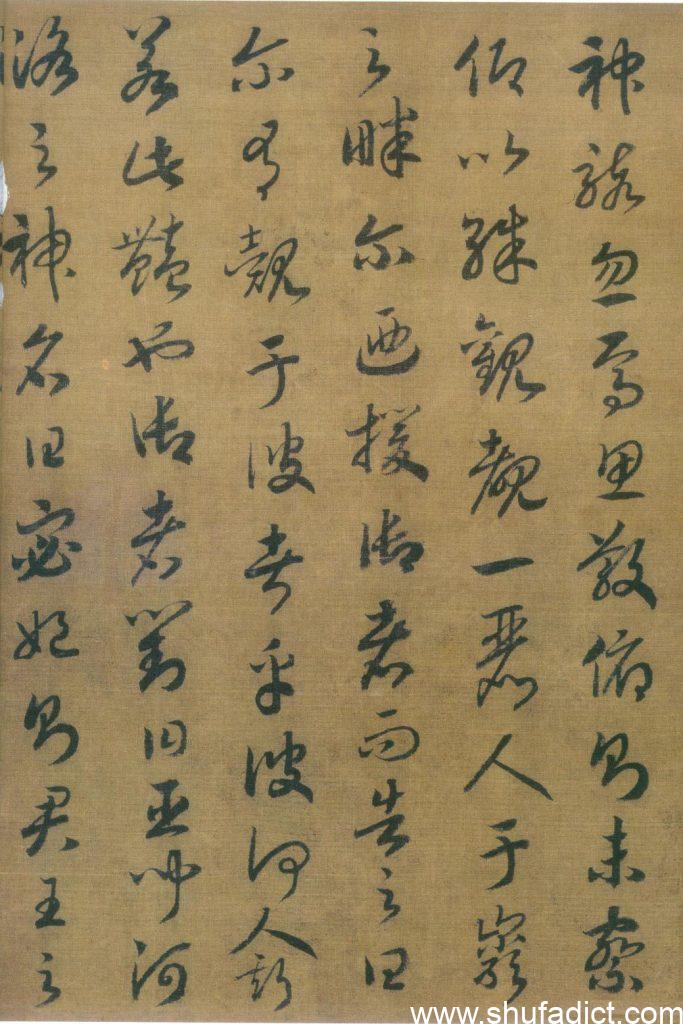 神駭忽焉思散俯則未察
仰以殊觀覩一麗人于巖
之畔尔迺援御者而告之曰
尔有覿于彼者乎彼何人斯
若此豔也御者對曰臣聞河
洛之神名曰宓妃則君王之
www.shufadict.com